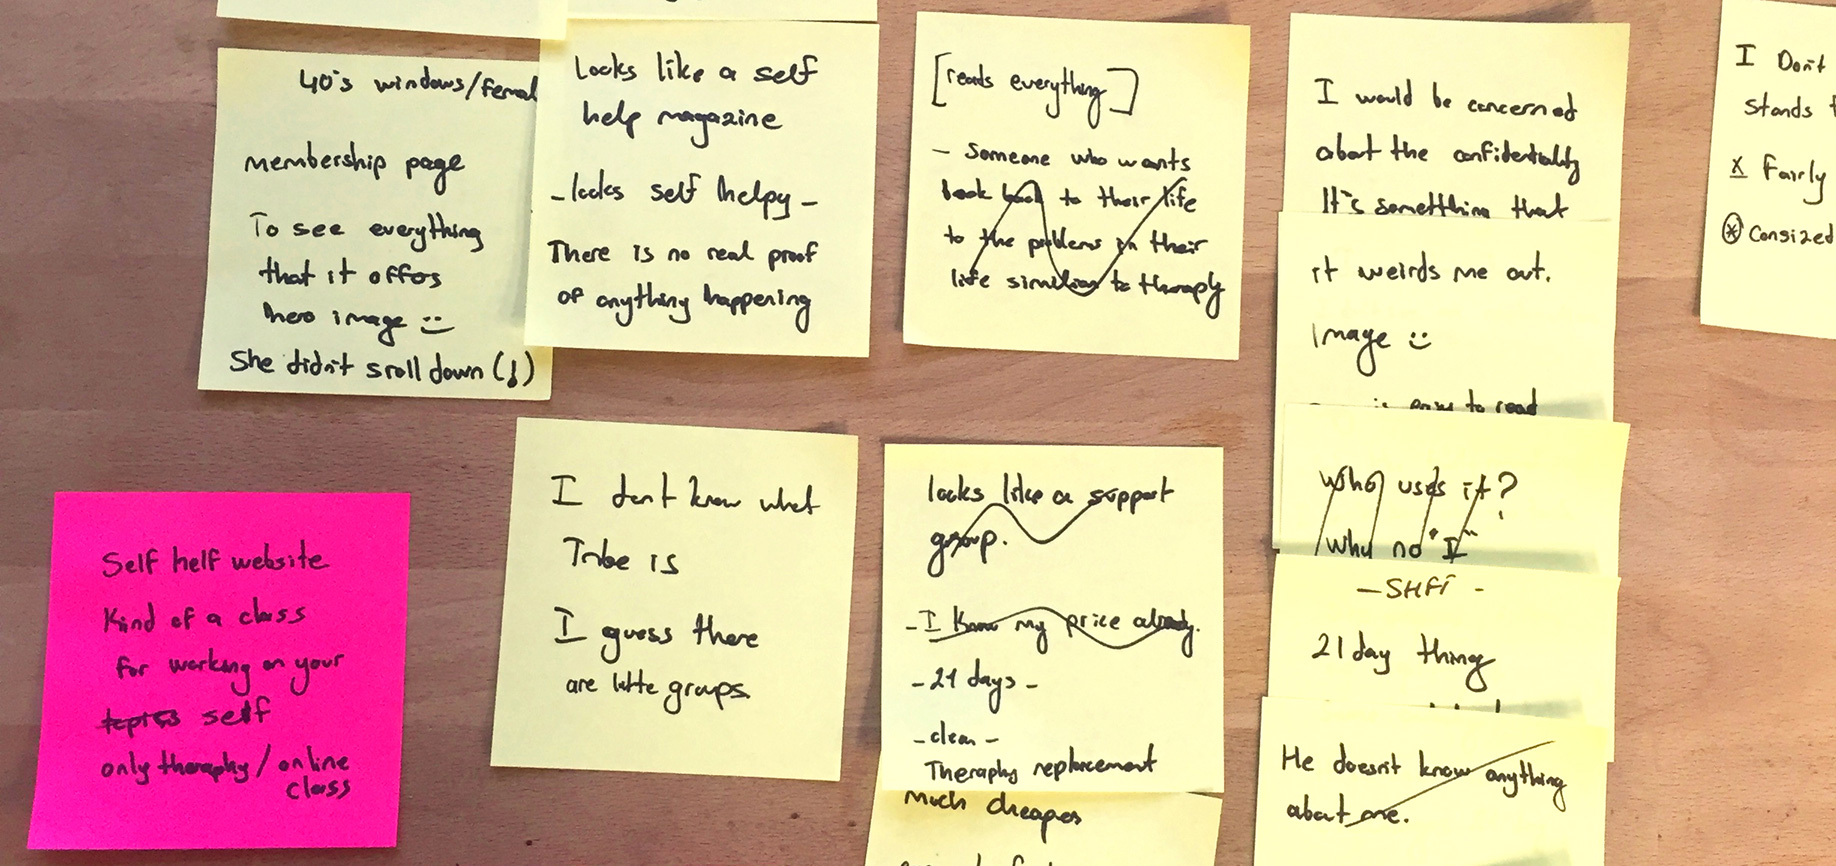 40's windows/femal
membership page
To see everything
that it offers
hero image :-)
She didn't scroll down (!)
Looks like a self
help magazine
- looks self helpy -
There is no real proof
of anything happening
[reads everything]
- Someone who wants
to their life
to the problems in their
life similar to theraphy
I would be concerned
about the confidentiality
It's sometthing that
it weirds me out.
Image :-)
is easy to read
Who uses it?
Why no "I"
- SHFT -
21 day thing
He doesn't know anything
about me.
I Don't
stands
x Fairly
* Consized
Self helf website
Kind of a class
for working on your
topics self
only theraphy / online
class
I don't know what
Tribe is
I guess there
are little groups
looks like a support
group.
- I know my price already.
- 21 days -
- clean -
Theraphy replacement
Much cheaper